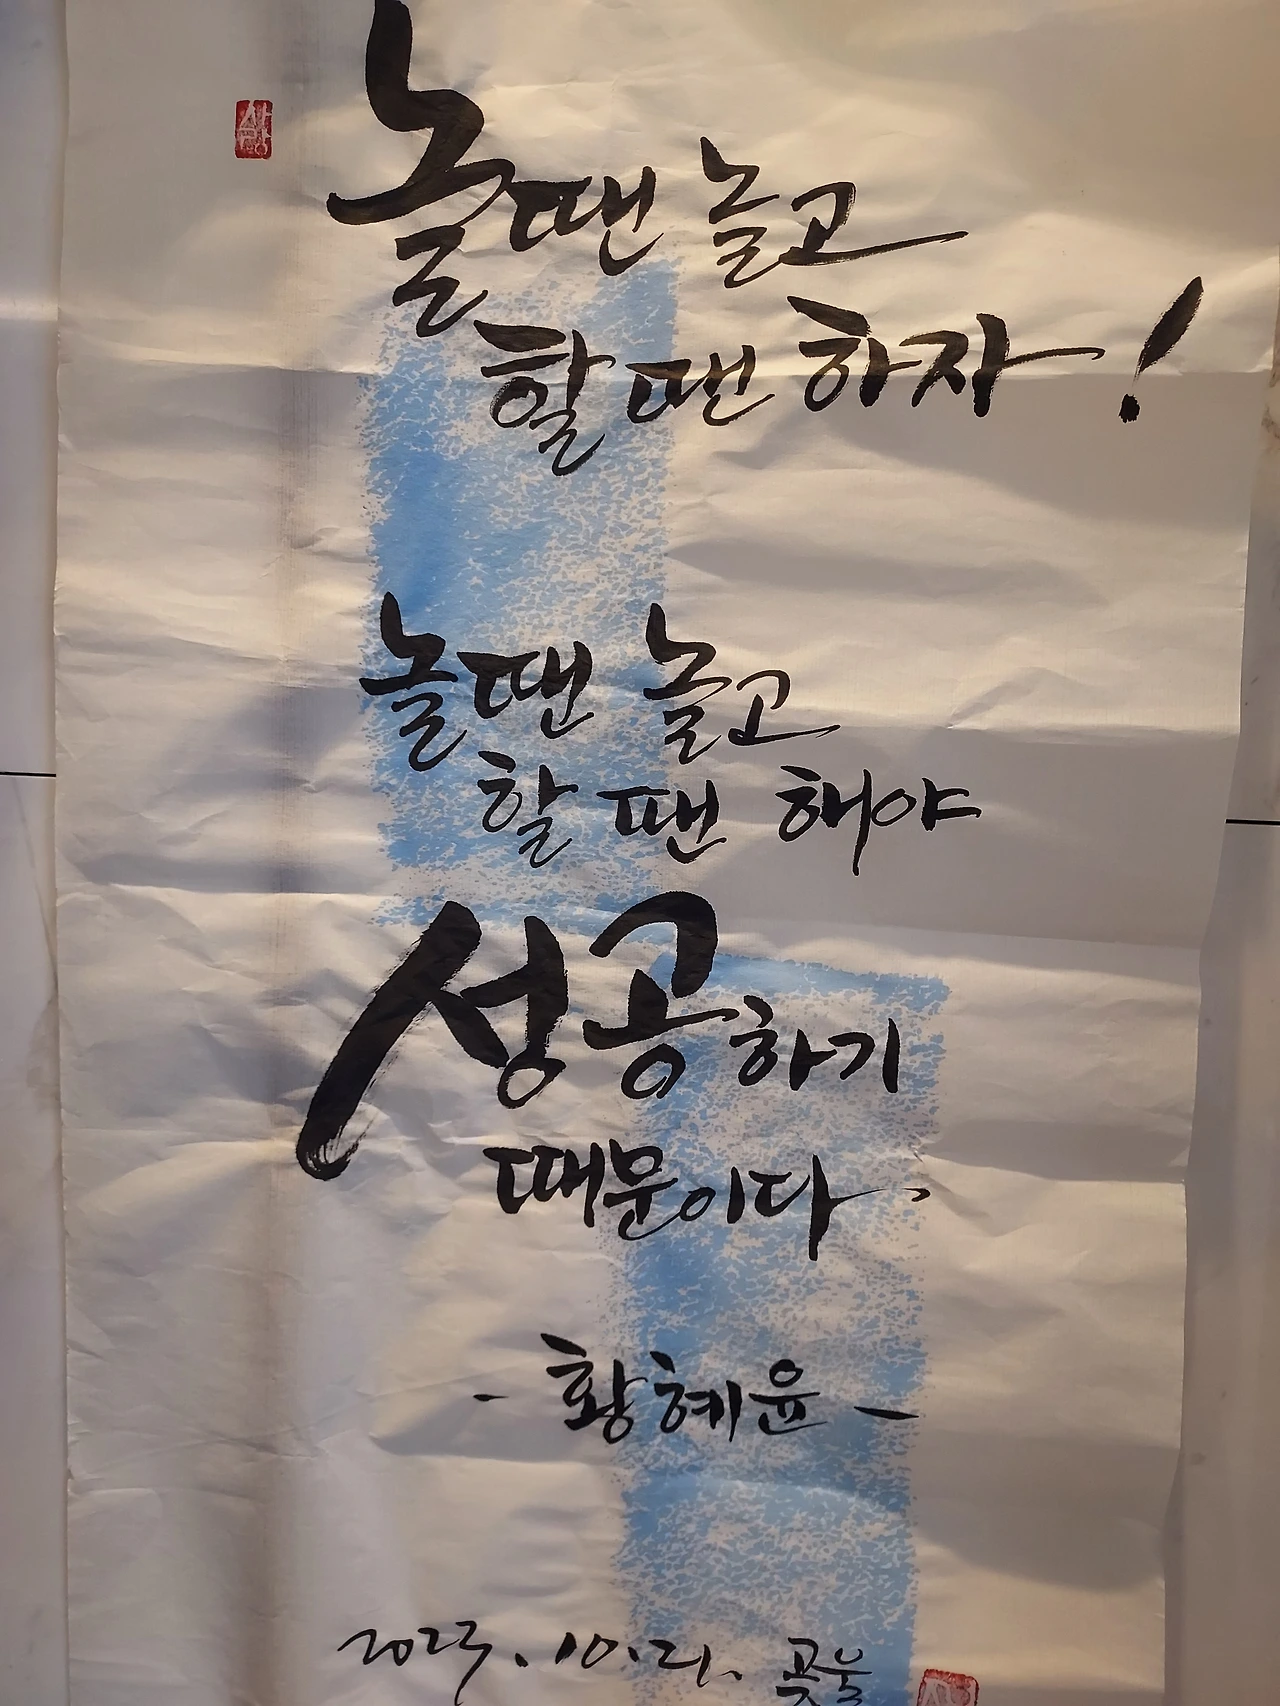 놀땐 놀고
할땐 하자!
놀땐 놀고
할 땐 해야
성공하기
때문이다.
- 황혜윤 -
2023. 10. 21.